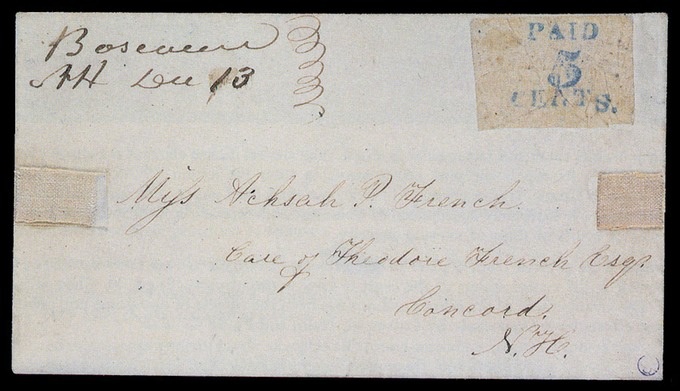 Boscawen
NH Dec 13
PAID
5
CENTS.
Miss Achsah P. French
Care of Theodore French Esqr
Concord.
N.H.